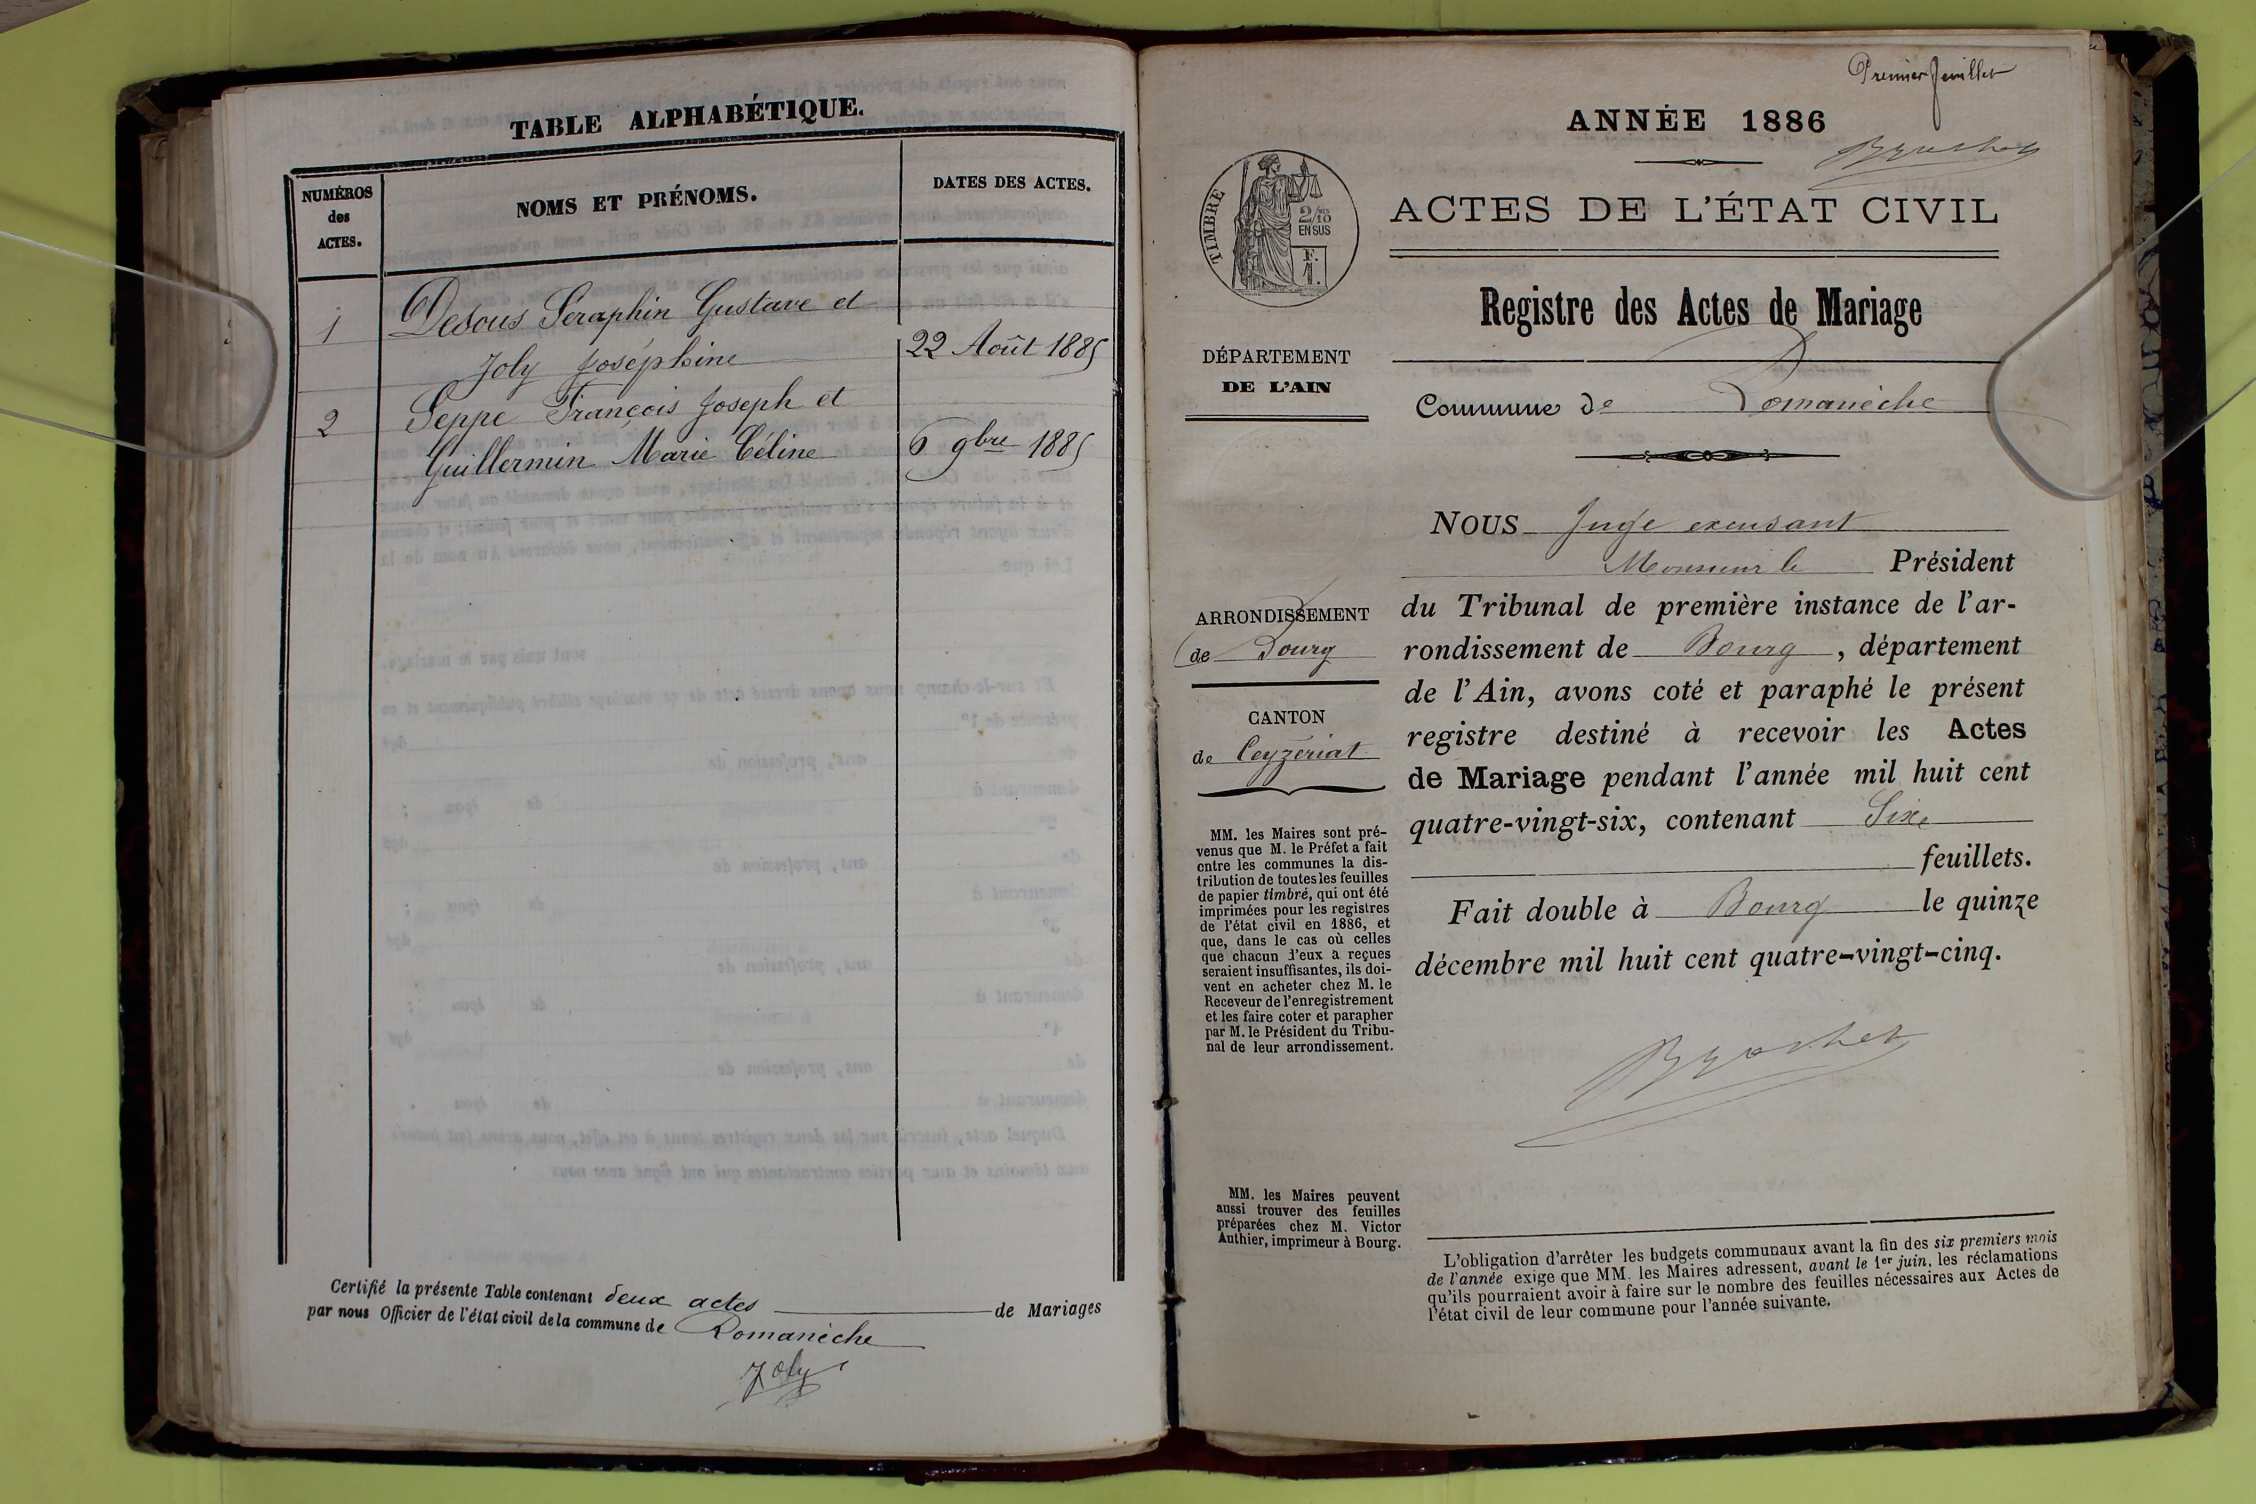 TABLE ALPHABÉTIQUE.
NUMÉROS
des
ACTES.
NOMS ET PRÉNOMS.
DATES DES ACTES.
1
Desous Seraphin Gustave et
Joly Joséphine
22 Août 1885
2
Seppe François Joseph et
Guillermin Marie Céline
6 9bre 1885
Certifié la présente Table contenant deux actes de Mariages
par nous Officier de l'état civil de la commune de Romanèche
Joly
Premier feuillet
ANNÉE 1886
TIMBRE
2/10
EN SUS
F.
1.
ACTES DE L'ÉTAT CIVIL
Registre des Actes de Mariage
DÉPARTEMENT
DE L'AIN
Commune de Romanèche
ARRONDISSEMENT
de Bourg
CANTON
de Ceyzériat
MM. les Maires sont pré-
venus que M. le Préfet a fait
entre les communes la dis-
tribution de toutes les feuilles
de papier timbré, qui ont été
imprimées pour les registres
de l'état civil en 1886, et
que, dans le cas où celles
que chacun d'eux a reçues
seraient insuffisantes, ils doi-
vent en acheter chez M. le
Receveur de l'enregistrement
et les faire coter et parapher
par M. le Président du Tribu-
nal de leur arrondissement.
MM. les Maires peuvent
aussi trouver des feuilles
préparées chez M. Victor
Authier, imprimeur à Bourg.
NOUS Juge excusant
Monsieur le Président
du Tribunal de première instance de l'ar-
rondissement de Bourg, département
de l'Ain, avons coté et paraphé le présent
registre destiné à recevoir les Actes
de Mariage pendant l'année mil huit cent
quatre-vingt-six, contenant Six
feuillets.
Fait double à Bourg le quinze
décembre mil huit cent quatre-vingt-cinq.
L'obligation d'arrêter les budgets communaux avant la fin des six premiers mois
de l'année exige que MM. les Maires adressent, avant le 1er juin, les réclamations
qu'ils pourraient avoir à faire sur le nombre des feuilles nécessaires aux Actes de
l'état civil de leur commune pour l'année suivante.